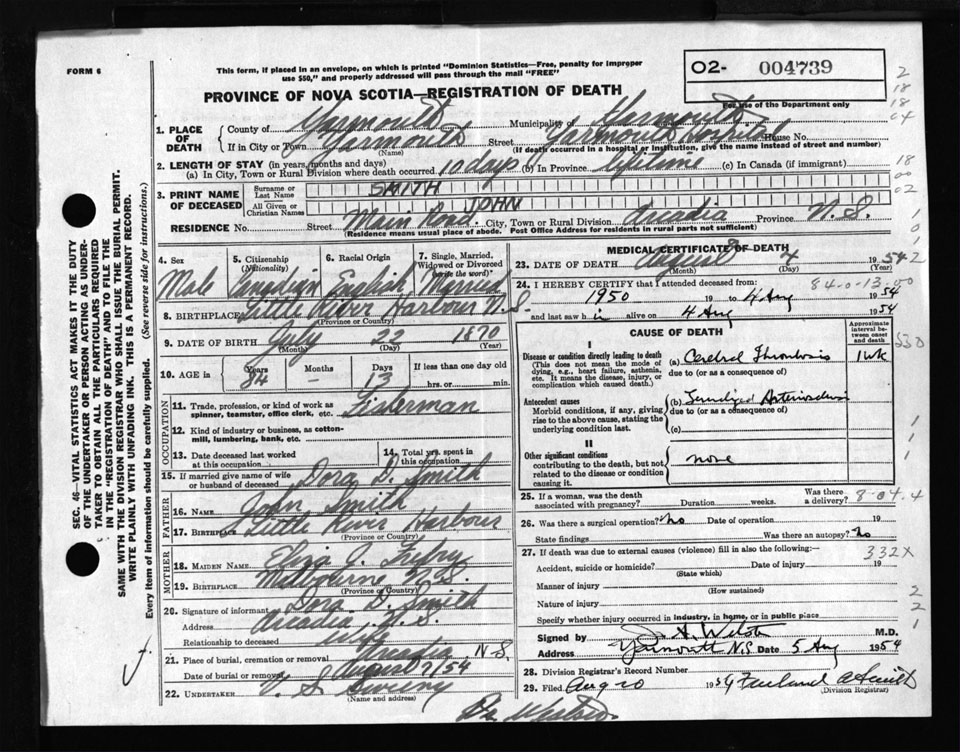 FORM 6
This form, if placed in an envelope, on which is printed "Dominion Statistics—Free, penalty for improper
use $50," and properly addressed will pass through the mail "FREE"
O2- 004739
For use of the Department only
PROVINCE OF NOVA SCOTIA—REGISTRATION OF DEATH
1. PLACE OF DEATH
County of Yarmouth Municipality of
If in City or Town Yarmouth Street Yarmouth Hospital House No.
(Name) (If death occurred in a hospital or institution, give the name instead of street and number)
2. LENGTH OF STAY (in years, months and days)
(a) In City, Town or Rural Division where death occurred 10 days (b) In Province lifetime (c) In Canada (if immigrant)
3. PRINT NAME OF DECEASED
Surname or Last Name SMITH
All Given or Christian Names JOHN
RESIDENCE No. Street Main Road City, Town or Rural Division Arcadia Province N.S.
(Residence means usual place of abode. Post Office Address for residents in rural parts not sufficient)
4. Sex
Male
5. Citizenship (Nationality)
Canadian
6. Racial Origin
English
7. Single, Married, Widowed or Divorced (Write the word)
Married
8. BIRTHPLACE Little River Harbour N.S.
(Province or Country)
9. DATE OF BIRTH July 22 1870
(Month) (Day) (Year)
10. AGE in Years 84 Months – Days 13 If less than one day old
hrs. or min.
OCCUPATION
11. Trade, profession, or kind of work as spinner, teamster, office clerk, etc. Fisherman
12. Kind of industry or business, as cotton-mill, lumbering, bank, etc.
13. Date deceased last worked at this occupation
14. Total yrs. spent in this occupation
15. If married give name of wife or husband of deceased Dora D. Smith
FATHER
16. NAME John Smith
17. BIRTHPLACE Little River Harbour
(Province or Country)
MOTHER
18. MAIDEN NAME
19. BIRTHPLACE Melbourne N.S.
(Province or Country)
20. Signature of informant Dora D. Smith
Address Arcadia, N.S.
Relationship to deceased wife
21. Place of burial, cremation or removal Arcadia N-S.
Date of burial or removal August 7/54
22. UNDERTAKER V. S. Sweeny
(Name and address)
MEDICAL CERTIFICATE OF DEATH
23. DATE OF DEATH August 4 1954
(Month) (Day) (Year)
24. I HEREBY CERTIFY that I attended deceased from:
84-0-13-00
1950 19 to 4 Aug 1954
and last saw him alive on 4 Aug 1954
CAUSE OF DEATH
Approximate interval between onset and death
I
Disease or condition directly leading to death (a) Cerebral Thrombosis 1 wk
(This does not mean the mode of dying, e.g., heart failure, asthenia, etc. It means the disease, injury, or complication which caused death.)
due to (or as a consequence of)
Antecedent causes (b) Generalized Arteriosclerosis
Morbid conditions, if any, giving rise to the above cause, stating the underlying condition last.
due to (or as a consequence of)
(c)
II
Other significant conditions
contributing to the death, but not related to the disease or condition causing it.
none
25. If a woman, was the death associated with pregnancy? Duration weeks. Was there a delivery? 8-04.4
26. Was there a surgical operation? No Date of operation 19
State findings Was there an autopsy? No
27. If death was due to external causes (violence) fill in also the following:— 332X
Accident, suicide or homicide? Date of injury 19
(State which)
Manner of injury
(How sustained)
Nature of injury
Specify whether injury occurred in industry, in home, or in public place
Signed by M.D.
Address Yarmouth N.S Date 5 Aug 1954
28. Division Registrar's Record Number
29. Filed Aug 20 1954
(Division Registrar)
SEC. 46—VITAL STATISTICS ACT MAKES IT THE DUTY
OF THE UNDERTAKER OR PERSON ACTING AS UNDER-
TAKER TO OBTAIN ALL THE PARTICULARS REQUIRED
IN THE "REGISTRATION OF DEATH" AND TO FILE THE
SAME WITH THE DIVISION REGISTRAR WHO SHALL ISSUE THE BURIAL PERMIT.
WRITE PLAINLY WITH UNFADING INK. THIS IS A PERMANENT RECORD.
Every item of information should be carefully supplied. (See reverse side for instructions.)